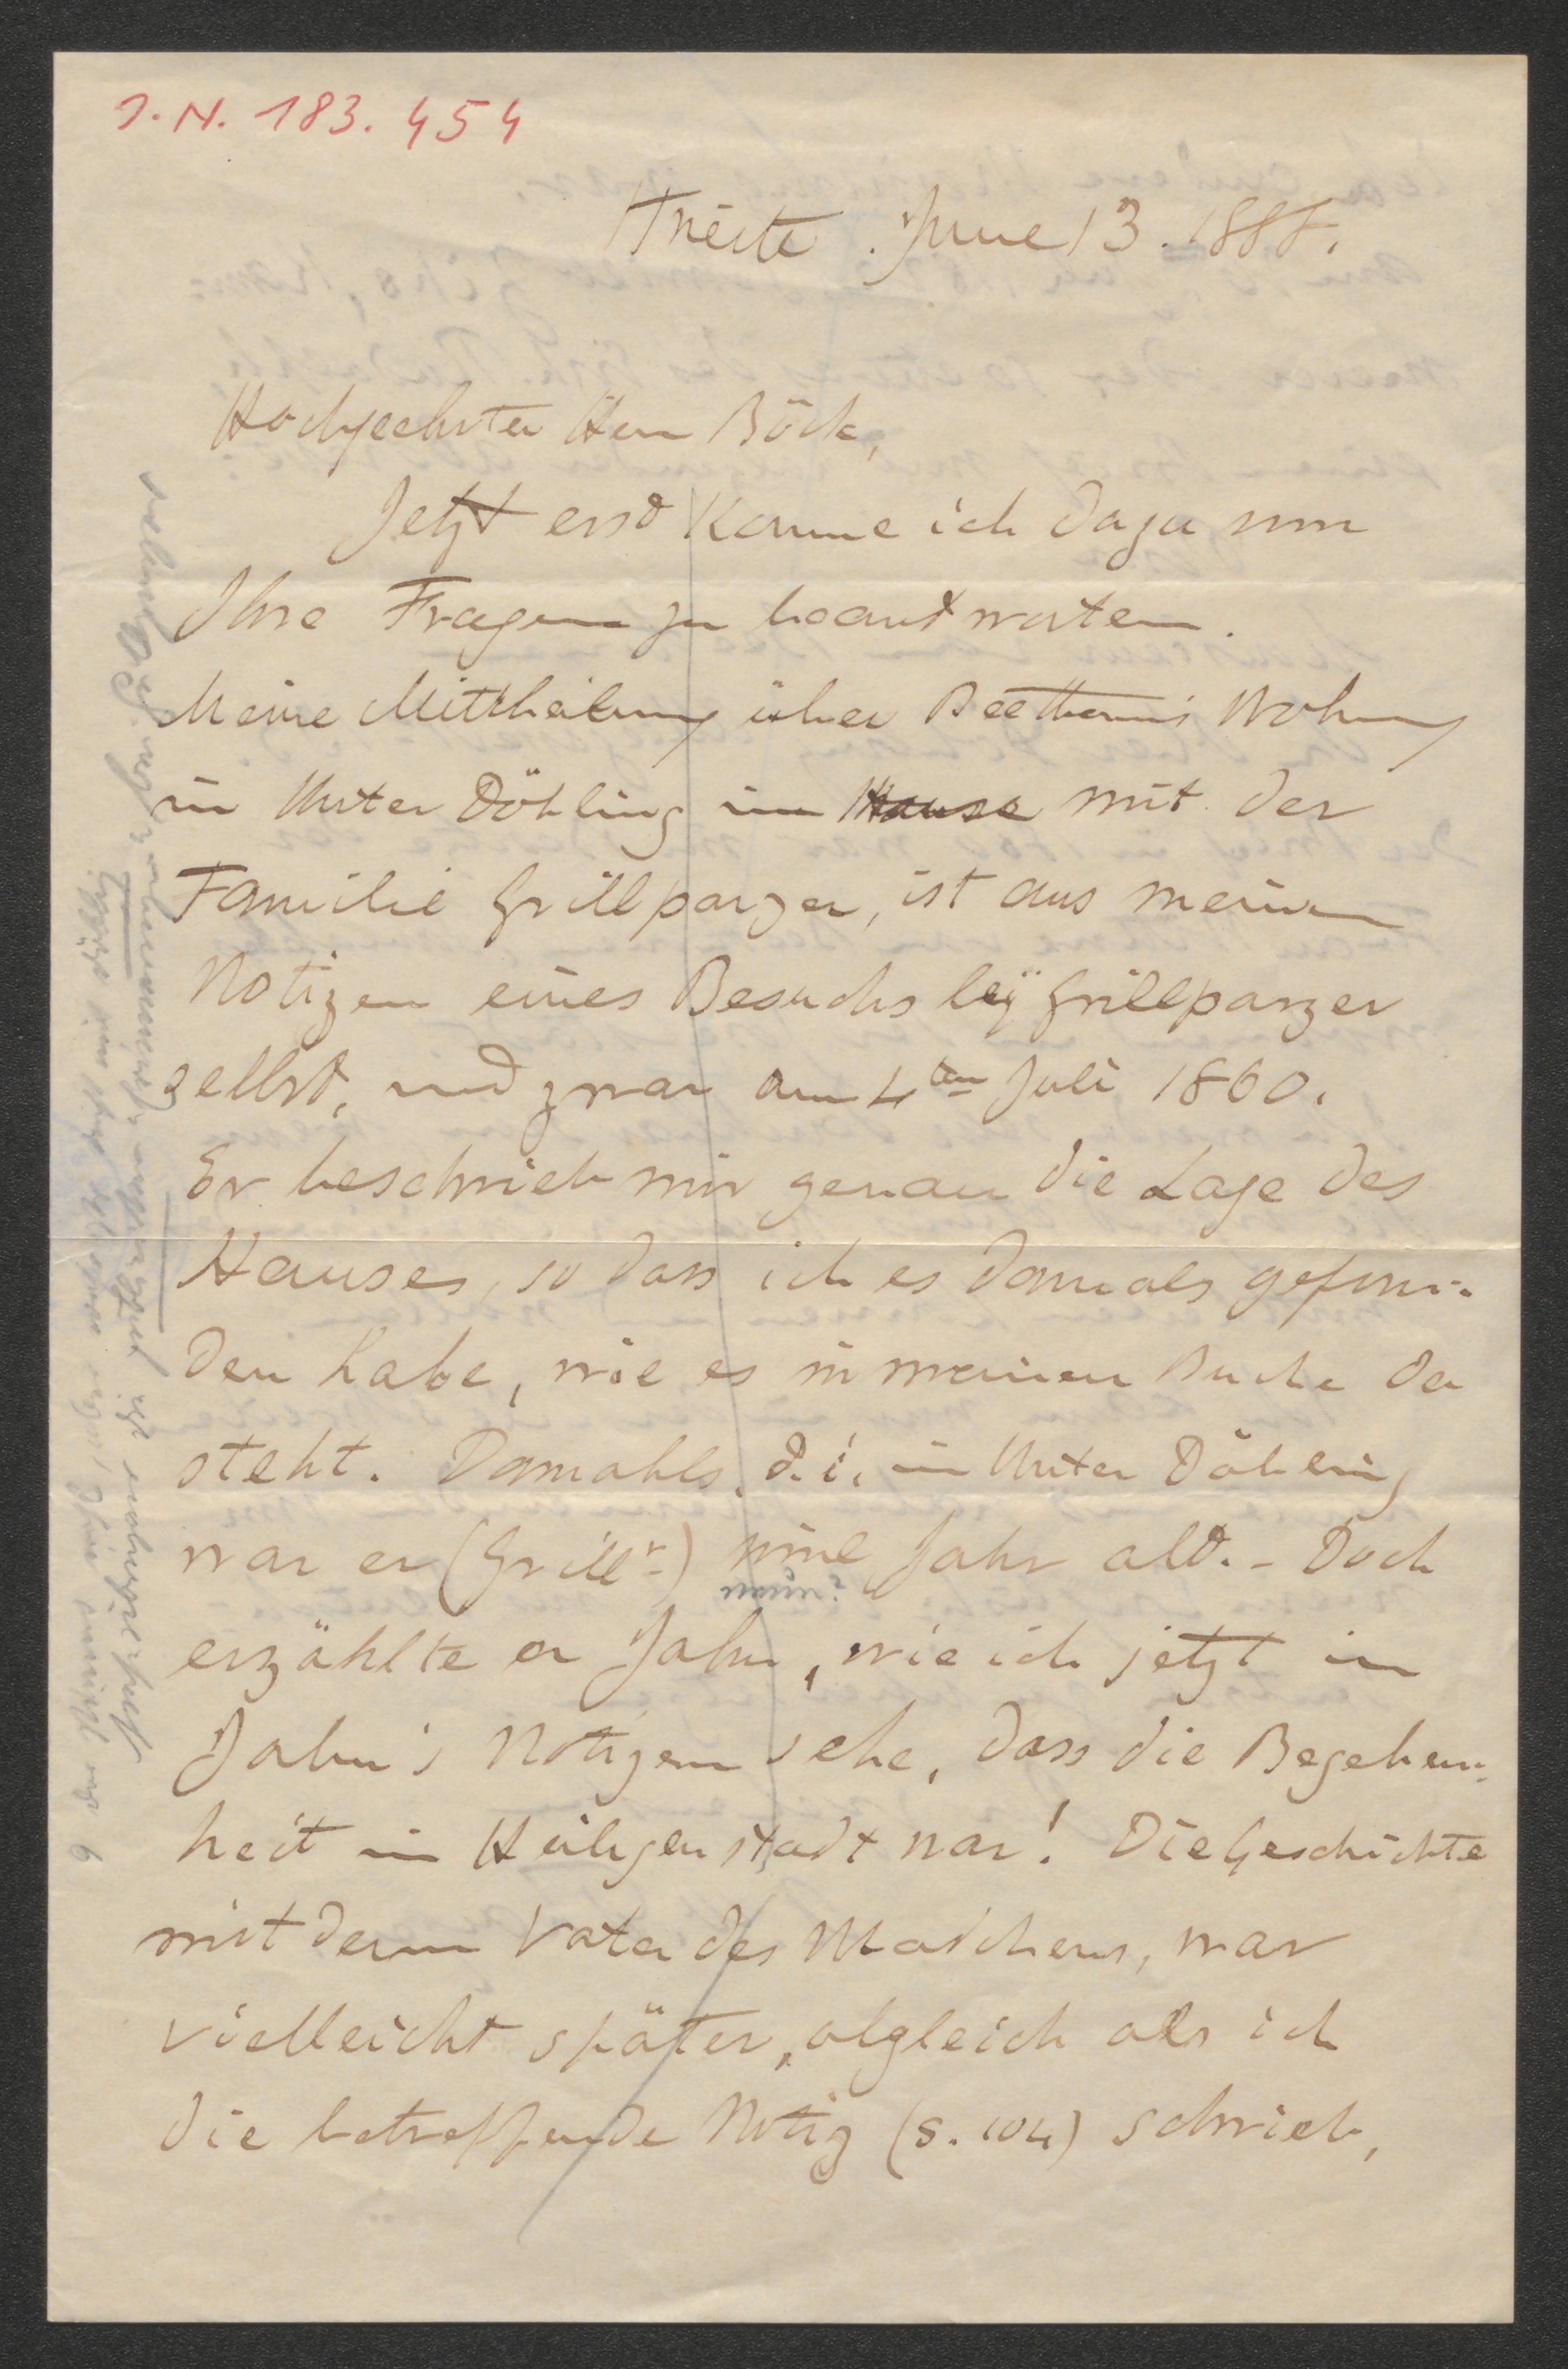 I.N. 183.454
Trieste. June 13. 1888.
Hochgeehrter Herr Böck,
Jetzt erst komme ich dazu um
Ihre Fragen zu beantworten.
Meine Mittheilung über Beethoven's Wohnung
in Unter Döbling im Hause mit der
Familie Grillparzer, ist aus meinen
Notizen eines Besuchs beÿ Grillparzer
selbst, und zwar am 4ten Juli 1860.
Er beschrieb mir genau die Lage des
Hauses, so dass ich es damals gefun-
den habe, wie es in meinem Buche da
steht. Damahls, d.i. in Unter Döbling
war er (Grillr) nine Jahr alt. - Doch
neun?
erzählte er Jahn, wie ich jetzt in
Jahn's Notizen sehe, dass die Begeben-
heit in Heiligenstadt war! Die Geschichte
mit dem Vater des Mädchens, war
vielleicht später, obgleich als ich
die betreffende Notiz (S. 104) schrieb,